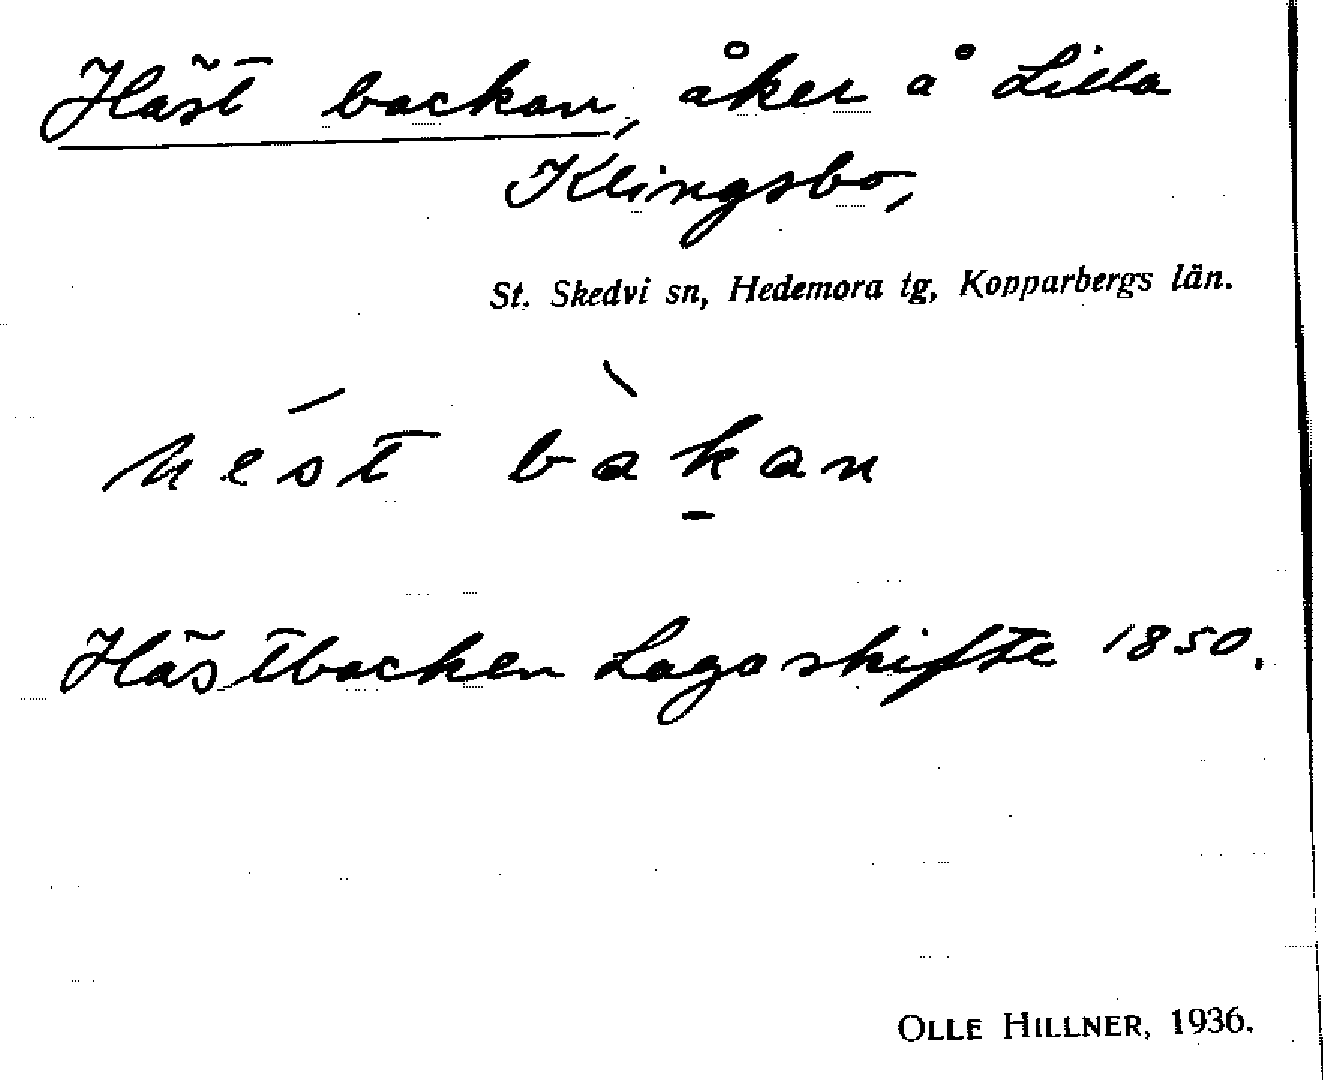 Häst backan, åker å Lilla
Klingsbo,
St. Skedvi sn, Hedemora tg, Kopparbergs län.
hést bàkan
Hästbacken Laga skifte 1850.
OLLE HILLNER, 1936.